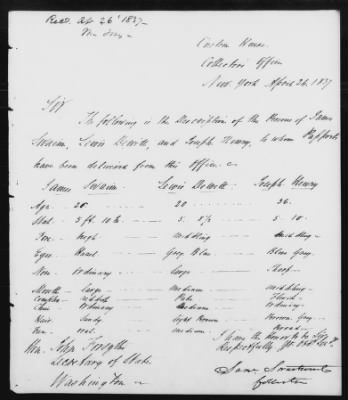 Recd. Ap. 26' 1837
Custom House
Collector's Office
New York April 26, 1837
Sir
The following is the Description of the Persons of James
Swaim, Lewis Dewitt, and Joseph Henry, to whom Passports
have been delivered from this Office.
James Swaim Lewis Dewitt Joseph Henry
Age 20 36
Stat. 5 ft. 10 5. 5 5. 10
Fore. high middling middling
Eyes Grey Blue Blue Grey
Nose Ordinary large Sharp
Mouth large medium middling
Complex Pale
Chin Ordinary medium Ordinary
Hair Sandy light Brown Brown Grey
Face oval medium Broad
Hon. John Forsyth I have the Honor to be Sir
Secretary of State Respectfully
Washington
Collector